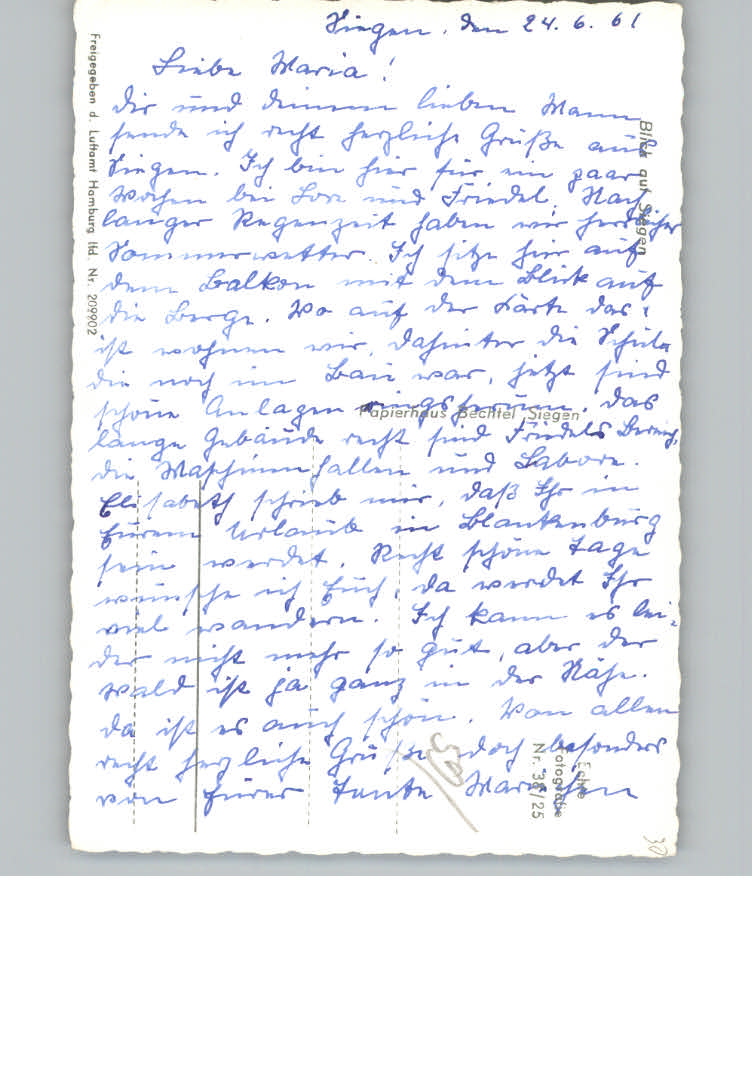 Siegen, den 24.6.61
Liebe Maria!
Dir und deinem lieben Mann
sende ich recht herzliche Grüße aus
Siegen. Ich bin hier für ein paar
Wochen bei Lore und Friedel. Nach
langer Regenzeit haben wir herrliches
Sommerwetter. Ich sitze hier auf
dem Balkon mit dem Blick auf
die Berge. Wo auf der Karte das
ist wohnen wir, dahinter die Schule
die noch im Bau war, jetzt sind
schöne Anlagen ringsherum. Das
lange Gebäude recht sind Friedels Bereich,
die Maschinenhallen und Labore.
Elisabeth schrieb mir, daß Ihr in
Eurem Urlaub in Blankenburg
sein werdet. Recht schöne Tage
wünsche ich Euch, da werdet Ihr
viel wandern. Ich kann es lei-
der nicht mehr so gut, aber der
Wald ist ja ganz in der Nähe.
Da ist es auch schön. Von allen
recht herzliche Grüße doch besonders
von Eurer Tante Mariechen
Freigegeben d. Luftamt Hamburg lfd. Nr. 209902
Blick auf Siegen
Papierhaus Bechtel Siegen
Echte
Fotografie
Nr. 38/25
30